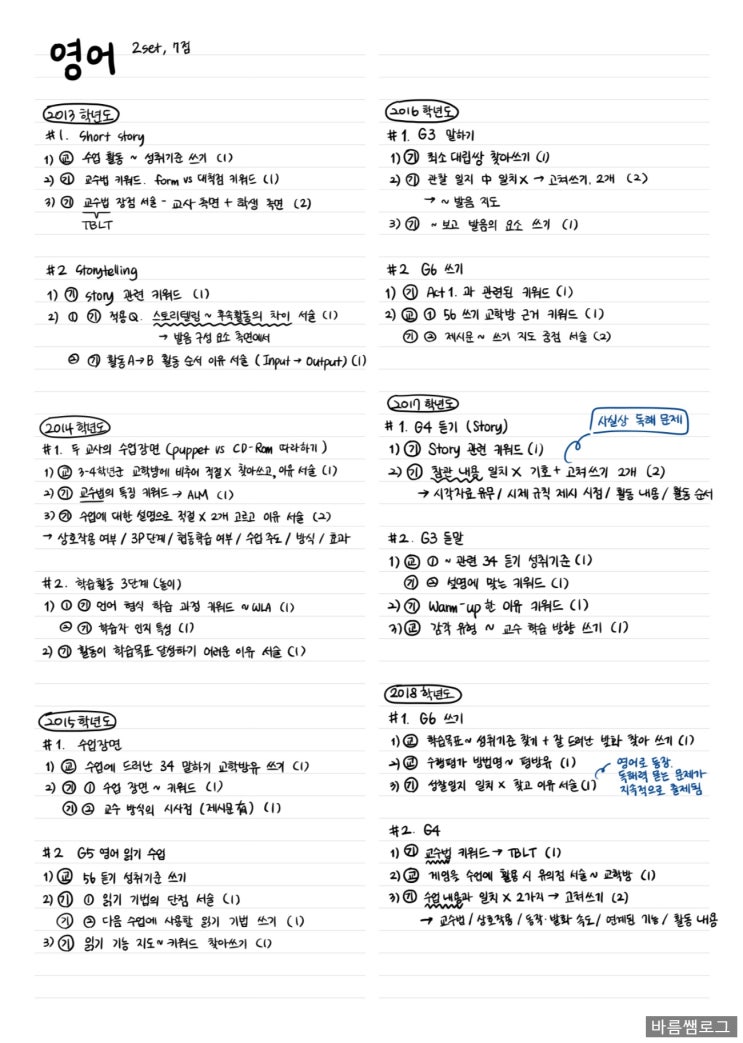 영어 2set, 7점
2013 학년도
#1. Short story
1) 교 수업 활동 ~ 성취기준 쓰기 (1)
2) 기 교수법 키워드. form vs 대척점 키워드 (1)
3) 기 교수법 장점 서술 - 교사 측면 + 학생 측면 (2)
TBLT
#2 Storytelling
1) 기 story 관련 키워드 (1)
2) ① 기 적용Q. 스토리텔링 ~ 후속활동의 차이 서술 (1)
→ 발음 구성 요소 측면에서
② 기 활동A→B 활동 순서 이유 서술 (Input → Output) (1)
2014 학년도
#1. 두 교사의 수업장면 (puppet vs CD-Rom 따라하기)
1) 교 3-4학년군 교학방에 비추어 적절X 찾아쓰고, 이유 서술 (1)
2) 기 교수법의 특징 키워드 → ALM (1)
3) 기 수업에 대한 설명으로 적절X 2개 고르고 이유 서술 (2)
→ 상호작용 여부 / 3P단계 / 협동학습 여부 / 수업 주도 / 방식 / 효과
#2. 학습활동 3단계 (놀이)
1) ① 기 언어 형식 학습 과정 키워드 ~ WLA (1)
② 기 학습자 인지 특성 (1)
2) 기 활동이 학습목표 달성하기 어려운 이유 서술 (1)
2015 학년도
#1. 수업장면
1) 교 수업에 드러난 34 말하기 교학방유 쓰기 (1)
2) 기 ① 수업 장면 ~ 키워드 (1)
기 ② 교수 방식의 시사점 (제시문 有) (1)
#2 G5 영어 읽기 수업
1) 교 56 듣기 성취기준 쓰기
2) 기 ① 읽기 기법의 단점 서술 (1)
기 ② 다음 수업에 사용할 읽기 기법 쓰기 (1)
3) 기 읽기 기능 지도 ~ 키워드 찾아쓰기 (1)
2016 학년도
#1. G3 말하기
1) 기 최소 대립쌍 찾아쓰기 (1)
2) 기 관찰 일지 中 일치X → 고쳐쓰기. 2개 (2)
→ ~ 발음 지도
3) 기 ~ 보고 발음의 요소 쓰기 (1)
#2 G6 쓰기
1) 기 Act 1. 과 관련된 키워드 (1)
2) 교 ① 56 쓰기 교학방 근거 키워드 (1)
기 ② 제시문 ~ 쓰기 지도 중점 서술 (2)
2017 학년도
#1. G4 듣기 (Story)
사실상 독해 문제
1) 기 Story 관련 키워드 (1)
2) 기 참관 내용 일치X 기호 + 고쳐쓰기 2개 (2)
→ 시각자료 유무 / 시제 규칙 제시 시점 / 활동 내용 / 활동 순서
#2. G3 듣말
1) 교 ① ~ 관련 34 듣기 성취기준 (1)
기 ② 설명에 맞는 키워드 (1)
2) 기 Warm-up 한 이유 키워드 (1)
3) 교 감각 유형 ~ 교수 학습 방향 쓰기 (1)
2018 학년도
#1. G6 쓰기
1) 교 학습목표 ~ 성취기준 찾기 + 잘 드러난 발화 찾아 쓰기 (1)
2) 교 수행평가 방법명 ~ 평방유 (1)
3) 기 성찰일지 일치X 찾고 이유 서술 (1)
영어로 등장.
독해력 묻는 문제가
지속적으로 출제됨
#2. G4
1) 기 교수법 키워드 → TBLT (1)
2) 교 게임을 수업에 활용 시 유의점 서술 ~ 교학방 (1)
3) 기 수업 내용과 일치X 2가지 → 고쳐쓰기 (2)
→ 교수법 / 상호작용 / 동작·발화 속도 / 연계된 기능 / 활동 내용
바름쌤로그